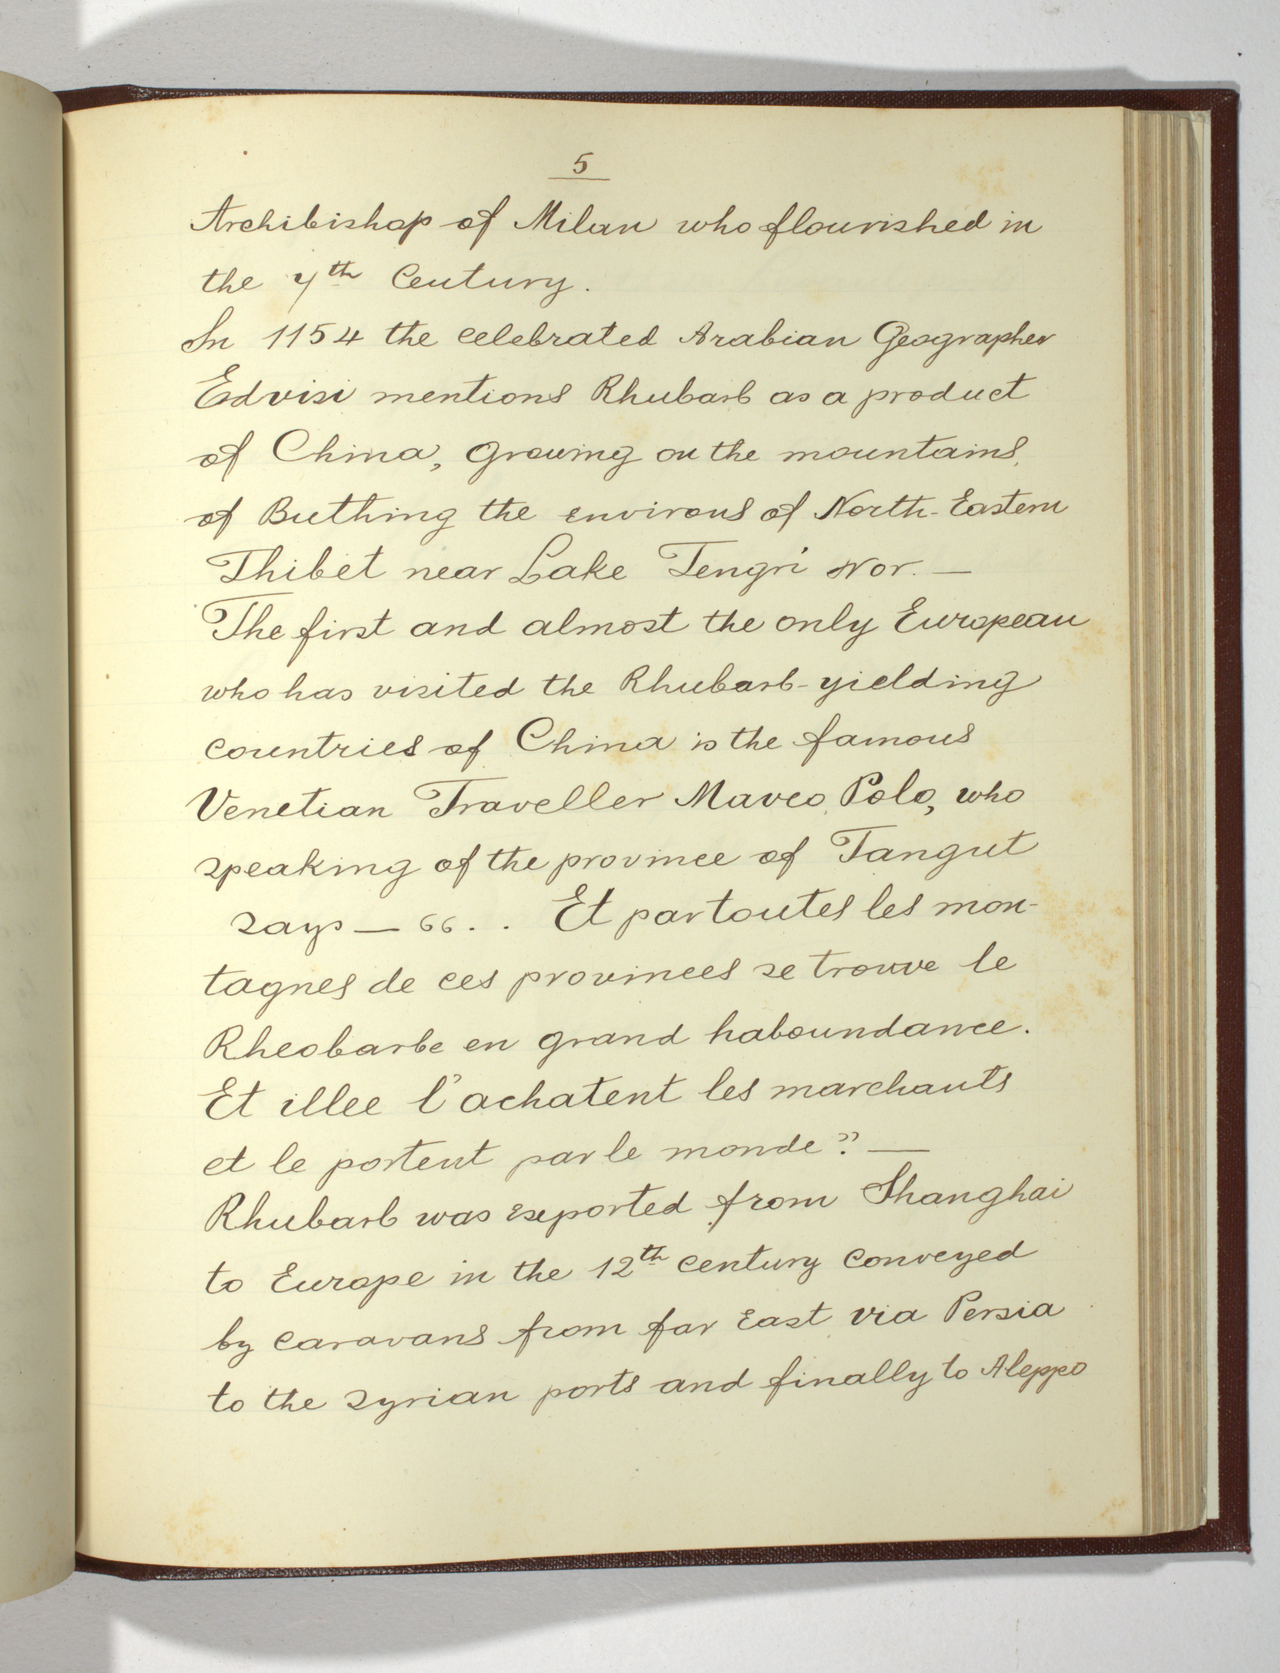 5
Archibishop of Milan who flourished in
the 7th Century.
In 1154 the celebrated Arabian Geographer
Edrisi mentions Rhubarb as a product
of China, growing on the mountains,
of Buthing the environs of North-Eastern
Thibet near Lake Tengri Nor. —
The first and almost the only European
who has visited the Rhubarb-yielding
countries of China is the famous
Venetian Traveller Marco Polo, who
speaking of the province of Tangut
says — “ . . Et par toutes les mon-
tagnes de ces provinces se trouve le
Rheobarbe en grand haboundance.
Et illec l'achatent les marchants
et le portent par le monde." —
Rhubarb was exported from Shanghai
to Europe in the 12th century conveyed
by caravans from far East via Persia
to the Syrian ports and finally to Aleppo